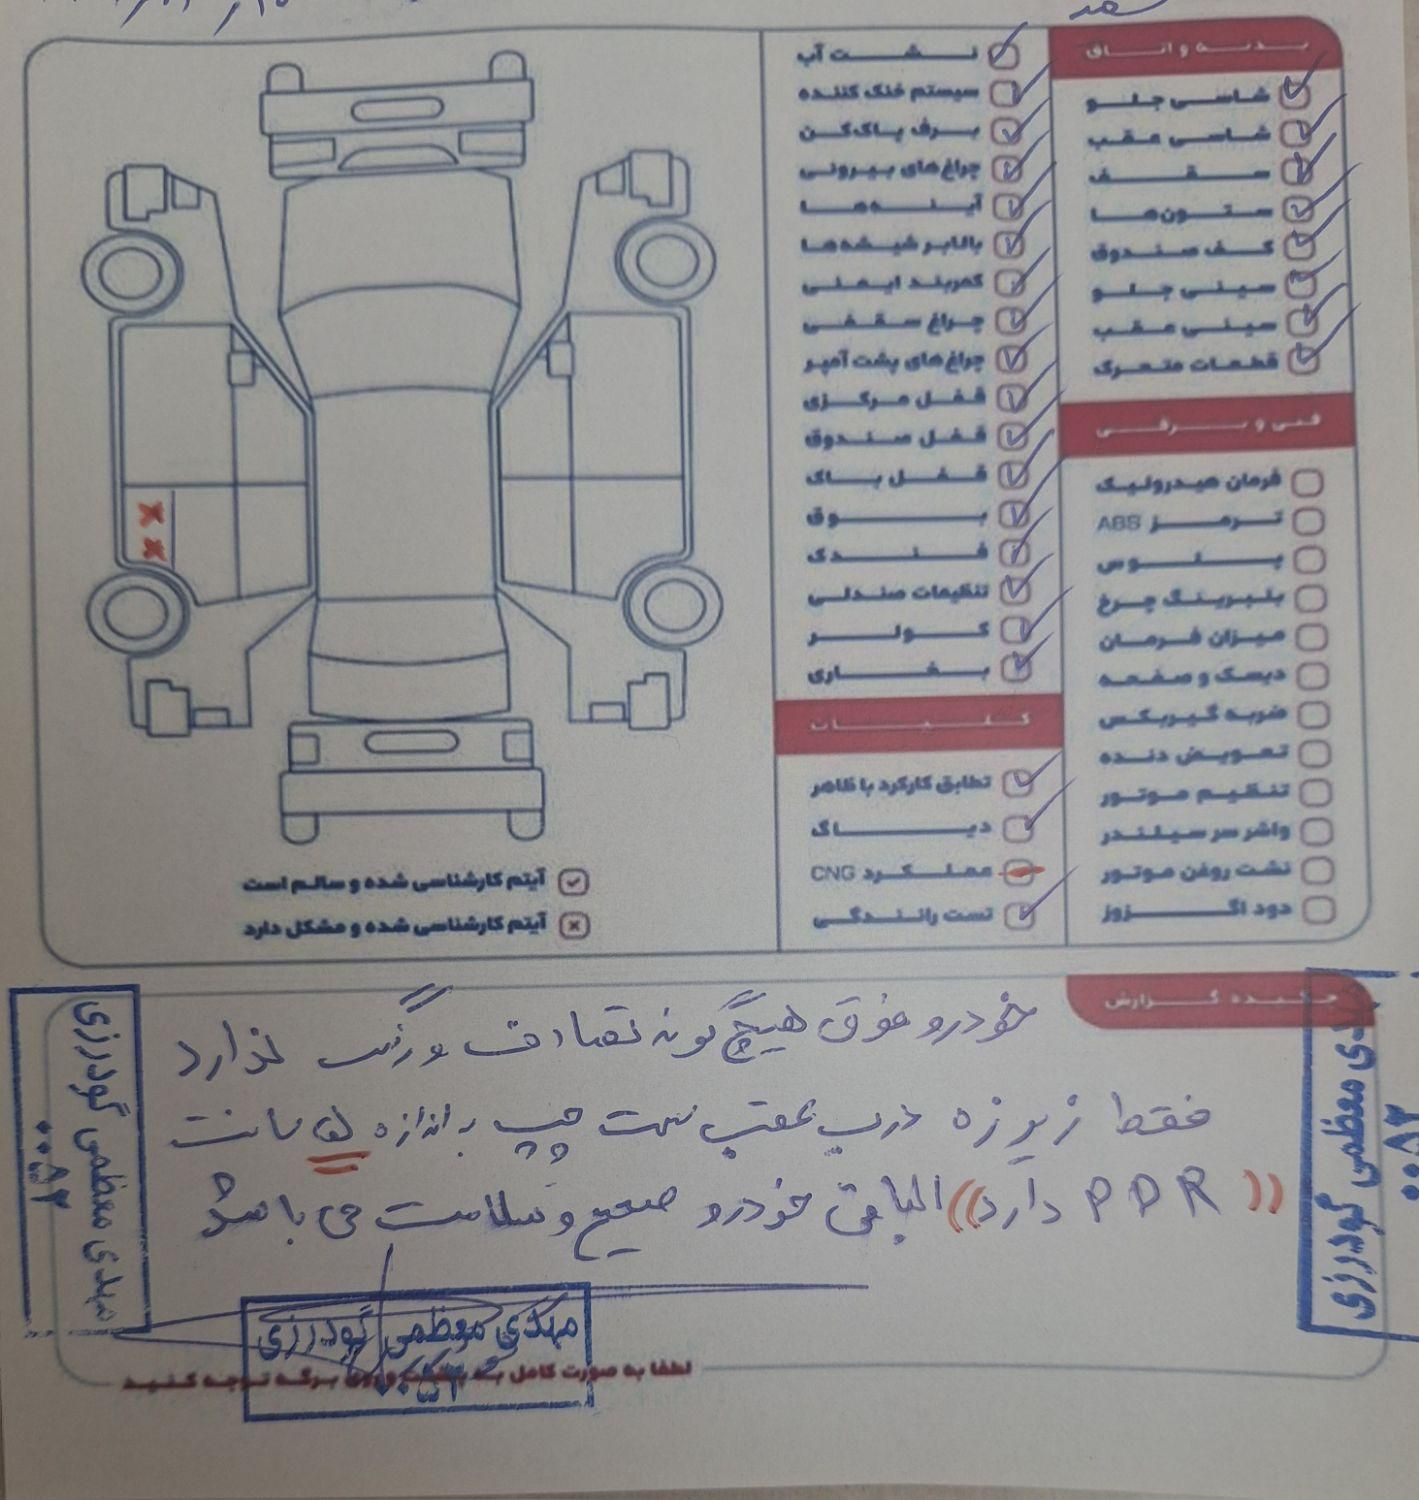 بدنه و اتاق
شاسی جلو
شاسی عقب
سقف
ستون‌ها
کف صندوق
سینی جلو
سینی عقب
قطعات متحرک
فنی و برقی
فرمان هیدرولیک
ترمز ABS
پلوس
بلبرینگ چرخ
میزان فرمان
دیسک و صفحه
ضربه گیربکس
تعویض دنده
تنظیم موتور
واشر سر سیلندر
نشت روغن موتور
دود اگزوز
نشت آب
سیستم خنک کننده
برف پاک‌کن
چراغ‌های بیرونی
آینه‌ها
بالابر شیشه‌ها
کمربند ایمنی
چراغ سقفی
چراغ‌های پشت آمپر
قفل مرکزی
قفل صندوق
قفل باک
بوق
فندک
تنظیمات صندلی
کولر
بخاری
کلیات
تطابق کارکرد با ظاهر
دیاگ
عملکرد CNG
تست رانندگی
آیتم کارشناسی شده و سالم است
آیتم کارشناسی شده و مشکل دارد
چکیده گزارش
خودرو فوق هیچ گونه تصادف و رنگ ندارد
فقط زیر زه درب عقب سمت چپ به اندازه سانت
((PDR دارد)) الباقی خودرو صحیح و سلامت می باشد
مهدی معظمی گودرزی
۰۰۸۲
مهدی معظمی گودرزی
۰۰۸۲
مهدی معظمی گودرزی
لطفا به صورت کامل به پشت برگه توجه کنید